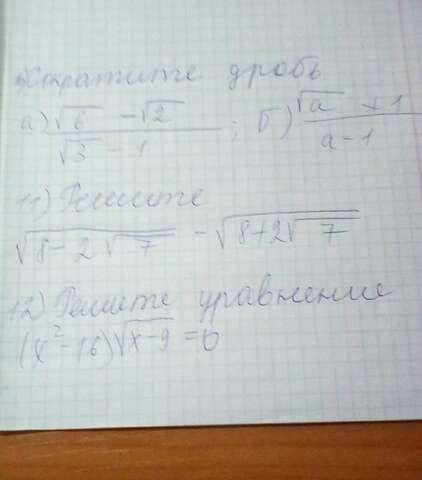 Сократите дробь
а) (√6 - √2)/(√3 - 1) ; б) (√a + 1)/(a - 1)
11) Решите
√(8 - 2√7) - √(8+2√7)
12) Решите уравнение
(x² - 16)√(x - 9) = 0